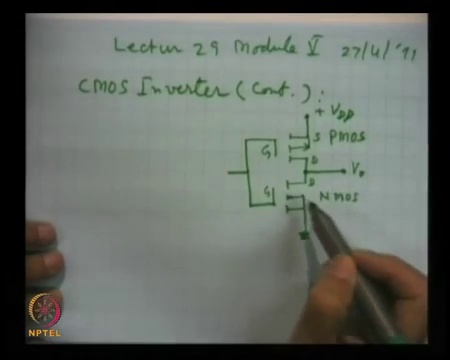 Lectur 29 Module V 27/4/'11
CMOS Inverter (Cont.) :
+ VDD
S PMOS
G
D
Vo
D
G
NMOS
NPTEL